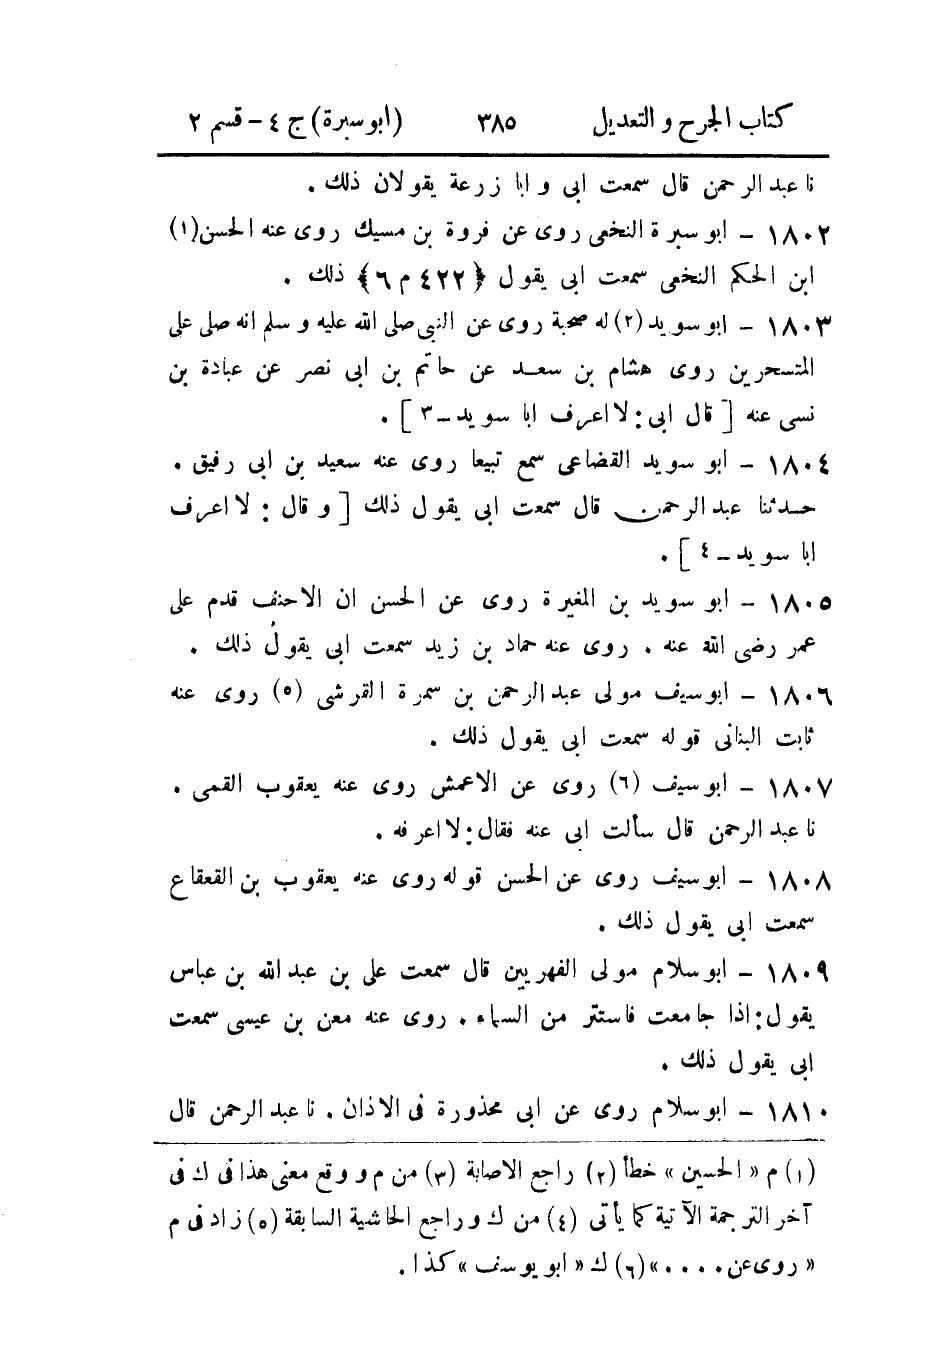 كتاب الجرح والتعديل ٣٨٥ (ابو سبرة) ج ٤ - قسم ٢
نا عبد الرحمن قال سمعت ابى وابا زرعة يقولان ذلك .
١٨٠٢ - ابو سبرة النخعى روى عن فروة بن مسيك روى عنه الحسن (١)
ابن الحكم النخعى سمعت ابى يقول ﴿٤٢٢ م ٦﴾ ذلك .
١٨٠٣ - ابو سويد (٢) له صحبة روى عن النبى صلى الله عليه وسلم انه صلى على
المتسحرين روى هشام بن سعد عن حاتم بن ابى نصر عن عبادة بن
نسى عنه [ قال ابى : لا اعرف ابا سويد - ٣ ] .
١٨٠٤ - ابو سويد القضاعى سمع تبيعا روى عنه سعيد بن ابى رفيق .
حدثنا عبد الرحمن قال سمعت ابى يقول ذلك [ و قال : لا اعرف
ابا سويد - ٤ ] .
١٨٠٥ - ابو سويد بن المغيرة روى عن الحسن ان الاحنف قدم على
عمر رضى الله عنه . روى عنه حماد بن زيد سمعت ابى يقول ذلك .
١٨٠٦ - ابو سيف مولى عبد الرحمن بن سمرة القرشى (٥) روى عنه
ثابت البنانى قوله سمعت ابى يقول ذلك .
١٨٠٧ - ابو سيف (٦) روى عن الاعمش روى عنه يعقوب القمى .
نا عبد الرحمن قال سألت ابى عنه فقال : لا اعرفه .
١٨٠٨ - ابو سيف روى عن الحسن قوله روى عنه يعقوب بن القعقاع
سمعت ابى يقول ذلك .
١٨٠٩ - ابو سلام مولى الفهريين قال سمعت على بن عبد الله بن عباس
يقول : اذا جامعت فاستتر من السماء . روى عنه معن بن عيسى سمعت
ابى يقول ذلك .
١٨١٠ - ابو سلام روى عن ابى محذورة فى الاذان . نا عبد الرحمن قال
(١) م « الحسين » خطأ (٢) راجع الاصابة (٣) من م ووقع معنى هذا فى ك فى
آخر الترجمة الآتية كما يأتى (٤) من ك وراجع الحاشية السابقة (٥) زاد فى م
« روى عن . . . . » (٦) ك « ابو يوسف » كذا .